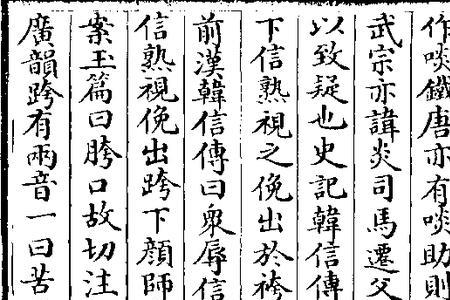 作啖鐵唐亦有啖助則
武宗亦諱炎司馬遷父
以致疑也史記韓信傳
下信熟視之俛出於袴
前漢韓信傳曰衆辱信
信熟視俛出跨下顔師
案玉篇曰胯口故切注
廣韻跨有兩音一曰苦